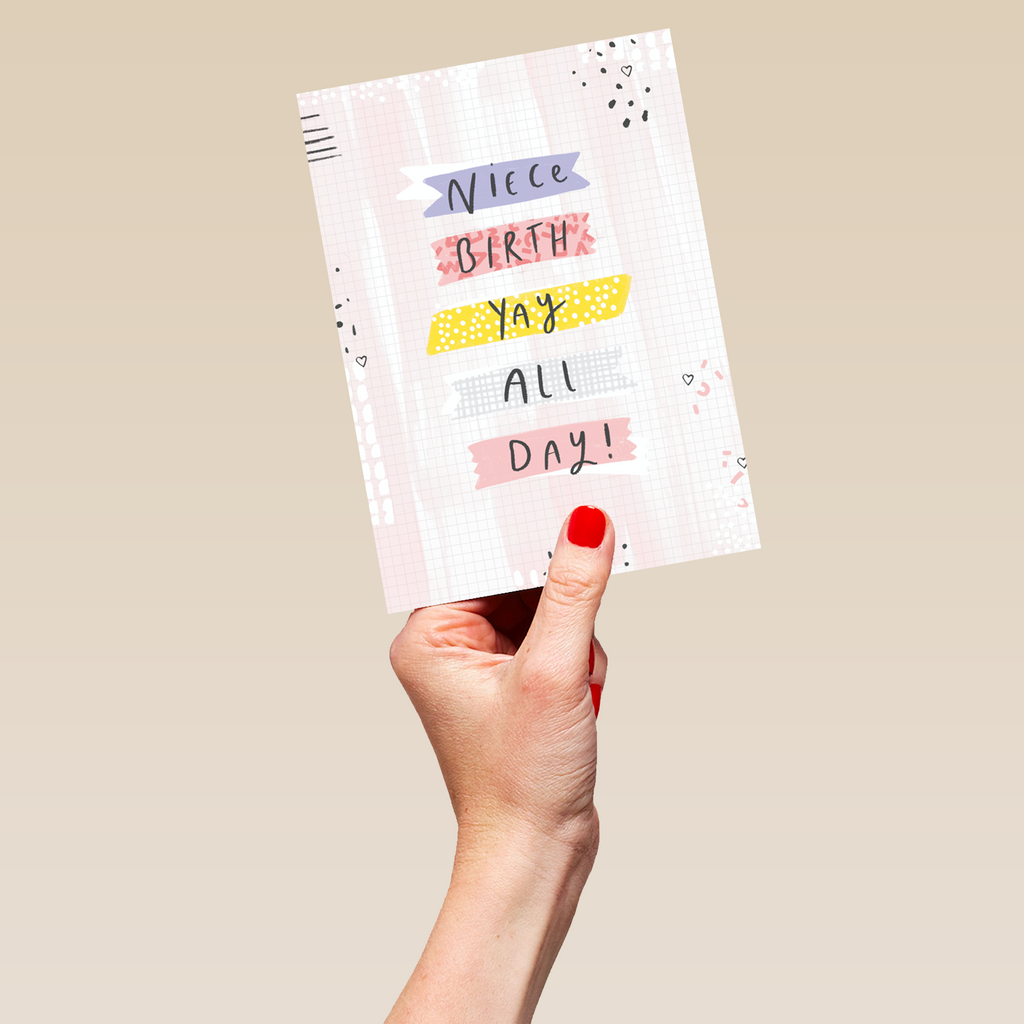 NiECe
BIRTH
YAY
ALL
DAY!